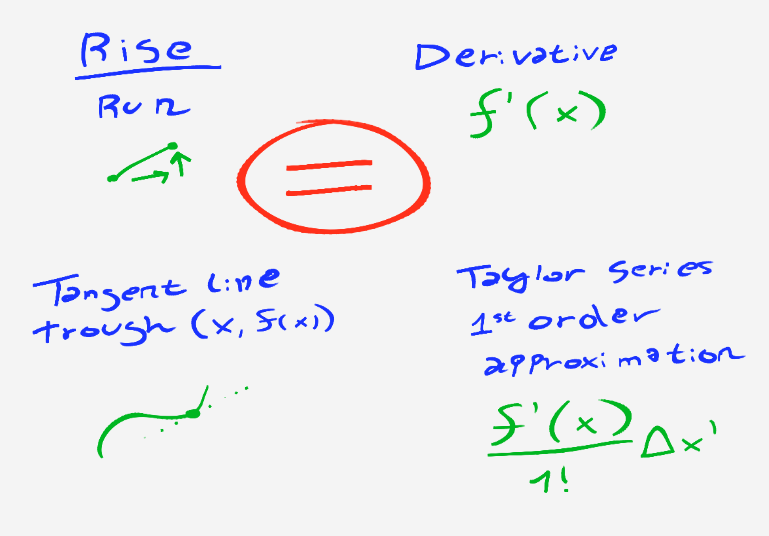 Rise
Run
=
Derivative
f'(x)
Tangent line
trough (x, f(x))
Taylor series
1st order
approximation
f'(x)
1!
Δx'